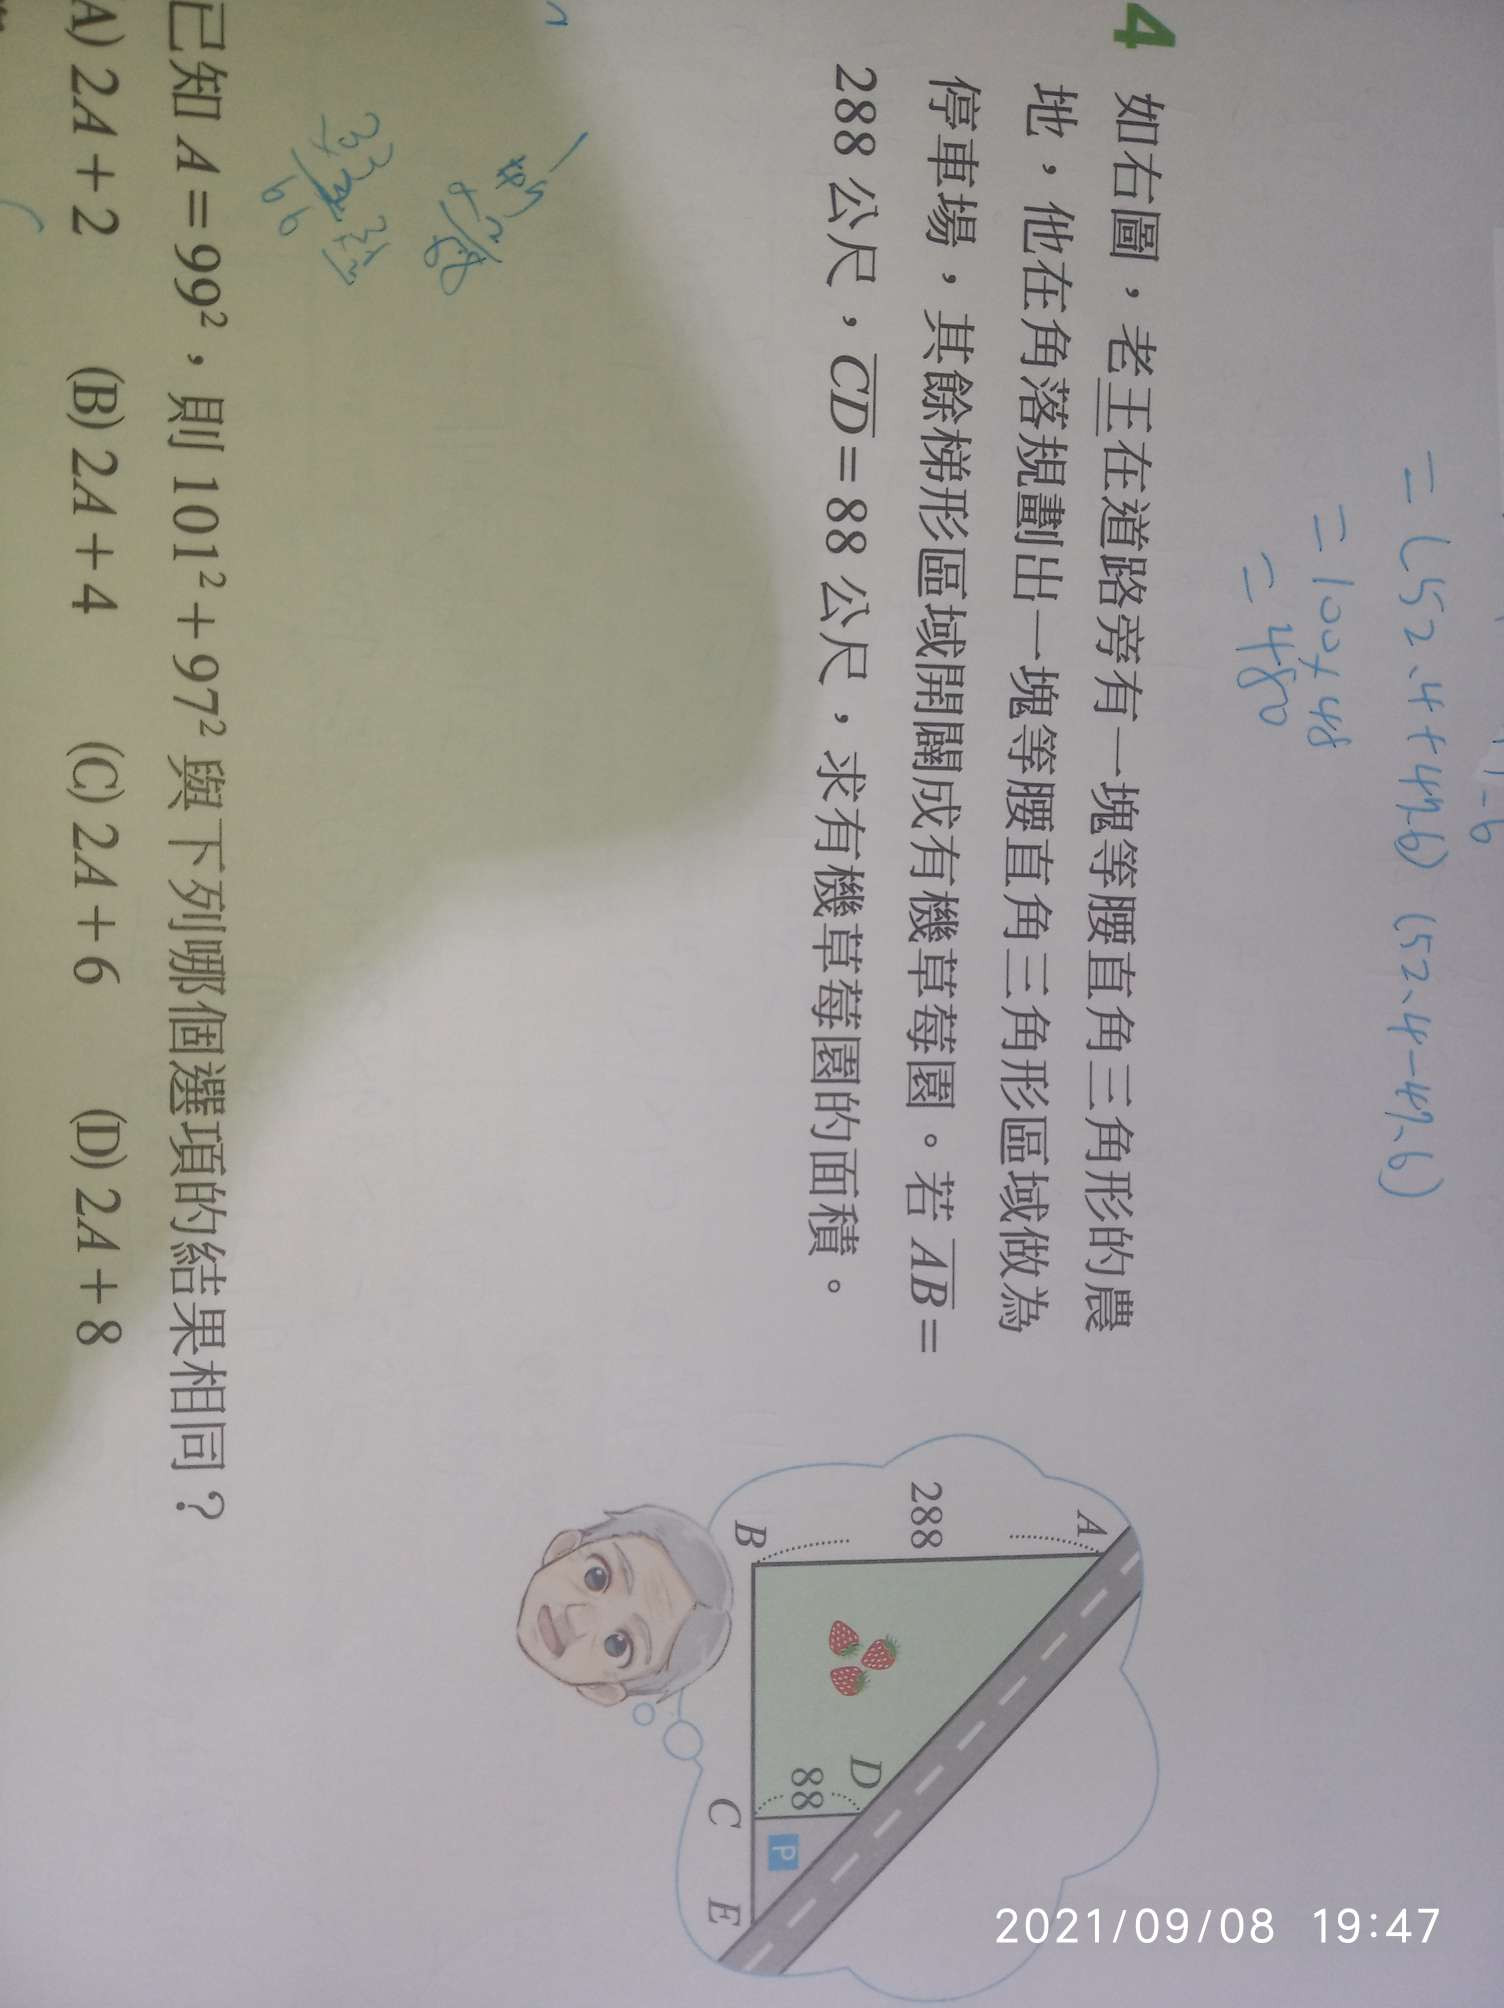 = (52.4+47.6)(52.4-47.6)
= 100×48
= 480
4 如右圖，老王在道路旁有一塊等腰直角三角形的農
地，他在角落規劃出一塊等腰直角三角形區域做為
停車場，其餘梯形區域開闢成有機草莓園。若 AB =
288 公尺，CD = 88 公尺，求有機草莓園的面積。
A
288
B
D
88
C
P
E
已知 A = 99²，則 101² + 97² 與下列哪個選項的結果相同？
A) 2A + 2 (B) 2A + 4 (C) 2A + 6 (D) 2A + 8
2021/09/08 19:47